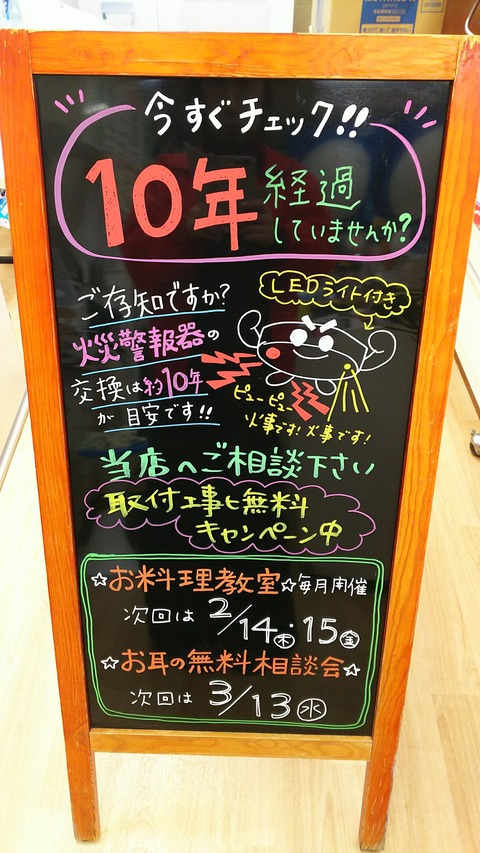 今すぐチェック!!
10年経過
していませんか?
ご存知ですか?
LEDライト付き
火災警報器の
交換は約10年
が目安です!!
ピューピュー
火事です!火事です!
当店へご相談下さい
取付工事も無料
キャンペーン中
☆お料理教室☆毎月開催
次回は2/14(木)・15(金)
☆お耳の無料相談会☆
次回は3/13(水)